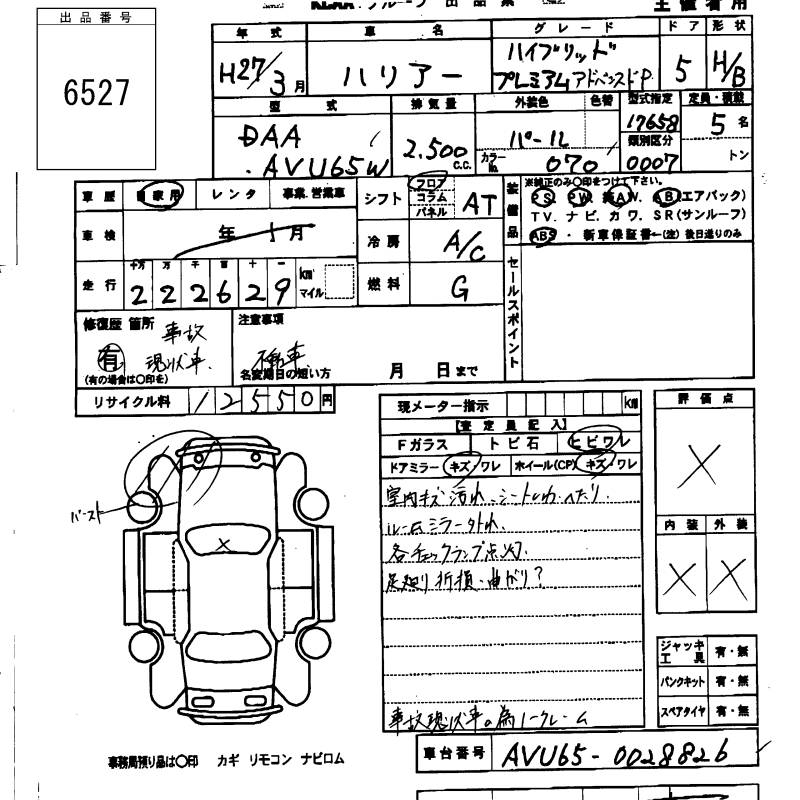 出品番号
6527
年式 車名 グレード ドア 形状
H27/3月 ハリアー ハイブリッド プレミアムアドバンスドP 5 H/B
型式 排気量 外装色 色替 型式指定 定員・積載
DAA AVU65W 2.500 c.c. パール 17658 5名
カラーNo. 070 類別区分 0007 トン
車歴 自家用 レンタ 事業.営業車
シフト フロア コラム パネル AT
装備品 ※純正のみ○印をつけて下さい。
PS. PW. 純AW. AB(エアバック)
TV. ナビ. カワ. SR(サンルーフ)
ABS ・ 新車保証書←(注) 後日送りのみ
車検 年 月
冷房 A/C
走行 十万 万 千 百 十 一
222629 km マイル
燃料 G
セールスポイント
修復歴 箇所 事故 現状車.
有 (有の場合は○印を)
注意事項 不動車
名変期日の短い方 月 日まで
リサイクル料 12550円
現メーター指示 km
【査定員記入】
Fガラス トビ石 ヒビワレ
ドアミラー キズ/ワレ ホイール(CP) キズ・ワレ
室内キズ汚れ、シートしわ・へたり.
ルームミラー外れ.
各チェックランプ点灯.
足廻り折損・曲がり?
事故現状車の為ノークレーム
評価点
X
内装 外装
X X
バースト
X
ジャッキ工具 有・無
パンクキット 有・無
スペアタイヤ 有・無
事務局預り品は○印 カギ リモコン ナビロム
車台番号 AVU65-0028826